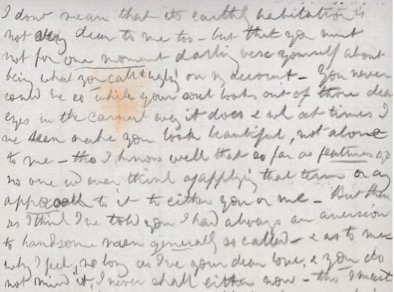 I don't mean that its earthly habitation is
not very dear to me too - but that you must
not for one moment darling vex yourself about
being what you call "ugly" on my account - You never
could be so while your soul looks out of those dear
eyes in the earnest way it does & wh at times I
've seen make you look beautiful, not alone
to me - tho I know well that so far as features go
no one wd ever think of applying that term or any
approach to it to either you or me - But then
as I think I've told you I had always an aversion
to handsome men generally so called - & as to me
why I feel, so long as I've your dear love, & you do
not mind it, I never shall either now - tho I must